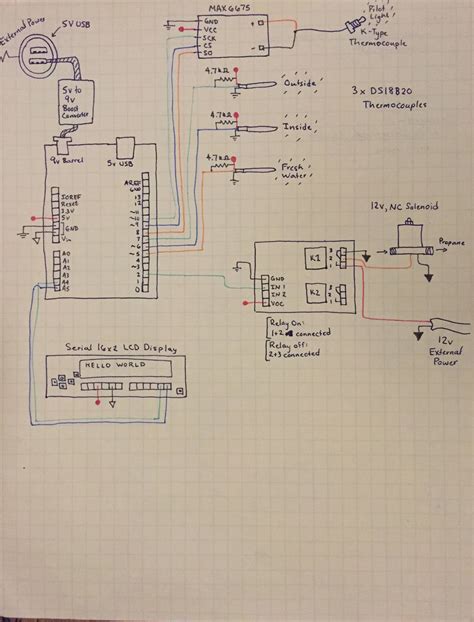 External Power
5V USB
5v to
9v
Boost
Converter
9v Barrel
5v USB
MAX6675
GND
VCC
SCK
CS
SO
Pilot
Light
K-Type
Thermocouple
4.7kΩ
Outside
4.7kΩ
Inside
4.7kΩ
Fresh
Water
3 x DS18B20
Thermocouples
IOREF
Reset
3.3V
5v
GND
Vin
A0
A1
A2
A3
A4
A5
AREF
GND
13
12
~11
~10
~9
8
7
~6
~5
4
~3
2
1
0
GND
IN 1
IN 2
VCC
K1
3
2
1
K2
3
2
1
12v, NC Solenoid
Propane
12v
External
Power
Relay On:
1+2 connected
Relay off:
2+3 connected
Serial 16x2 LCD Display
HELLO WORLD